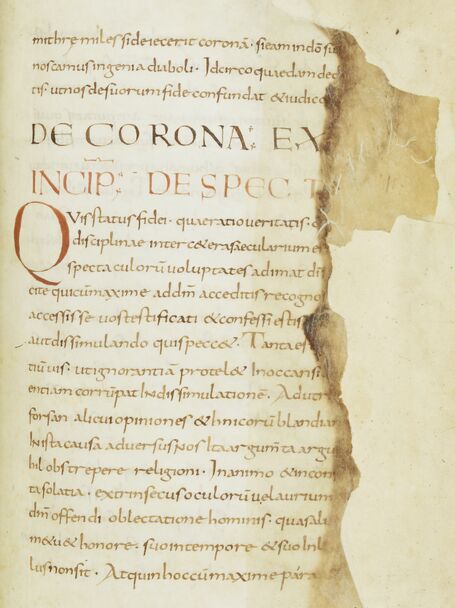 mithrę miles side iecerit coronā · si eam in dō su
noscamus ingenia diaboli · Idcirco quaedam de
tis ut nos de suorum fide confundat & iudic
DE CORONA · EX
INCIP · DE SPECT
Quis status fidei · quae ratio veritatis ·
disciplinae inter cetera saecularium e
spectaculorū voluptates adimat dī
cite qui cū maxime ad dm̄ acceditis recogno
accessisse vos testificati & confessi estis
aut dissimulando quis pecc& · Tanta es
tiū vis · ut ignorantiā protel& In occasi
entiam corrūpat In dissimulatione · Ad utr
forsan alicui opiniones &hnicorū blandian
In ista causa adversus nos Ita argum̄ta argu
hil obstrepere religioni · In animo & in con
ta solatia · extrinsecus oculorū vel aurium
dm̄ offendi oblectatione hominis · qua sal
m&u & honore · suo in tempore & suo In l
lus non sit · Atquin hoc cū maxime para